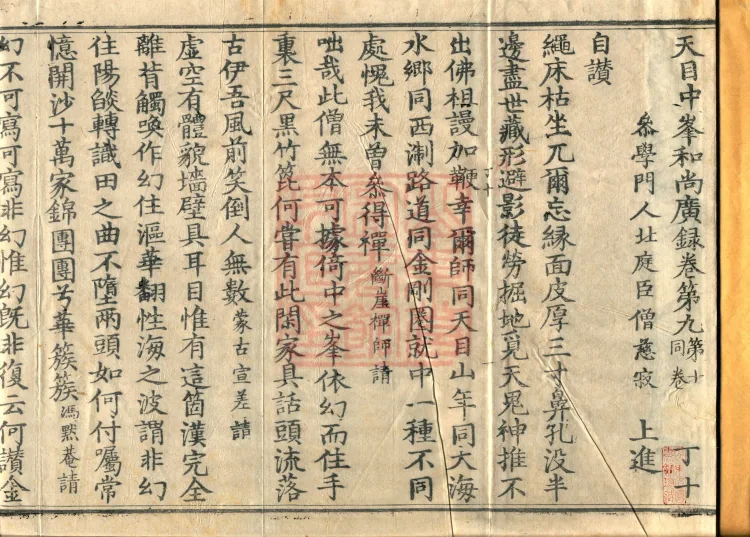 天目中峯和尚廣録卷第九 第十同卷 丁十
叅學門人北庭臣僧慈寂 上進
自讃
繩床枯坐兀爾忘縁面皮厚三寸鼻孔没半
邊盡世藏形避影徒勞掘地覓天鬼神推不
出佛祖謾加鞭幸爾師同天目山年同大海
水鄉同西淛路道同金剛圏就中一種不同
處愧我未曽叅得禪 斷崖禪師請
咄哉此僧無本可據倚中之峯依幻而住手
裏三尺黑竹箆何甞有此閑家具話頭流落
古伊吾風前笑倒人無數 蒙古宣差請
虚空有體貌墻壁具耳目惟有這箇漢完全
離背觸喚作幻住漚華翻性海之波謂非幻
住陽燄轉識田之曲不墮兩頭如何付囑常
憶開沙十萬家錦團團兮華簇簇 馮黙菴請
幻不可寫可寫非幻惟幻既非復云何讃金